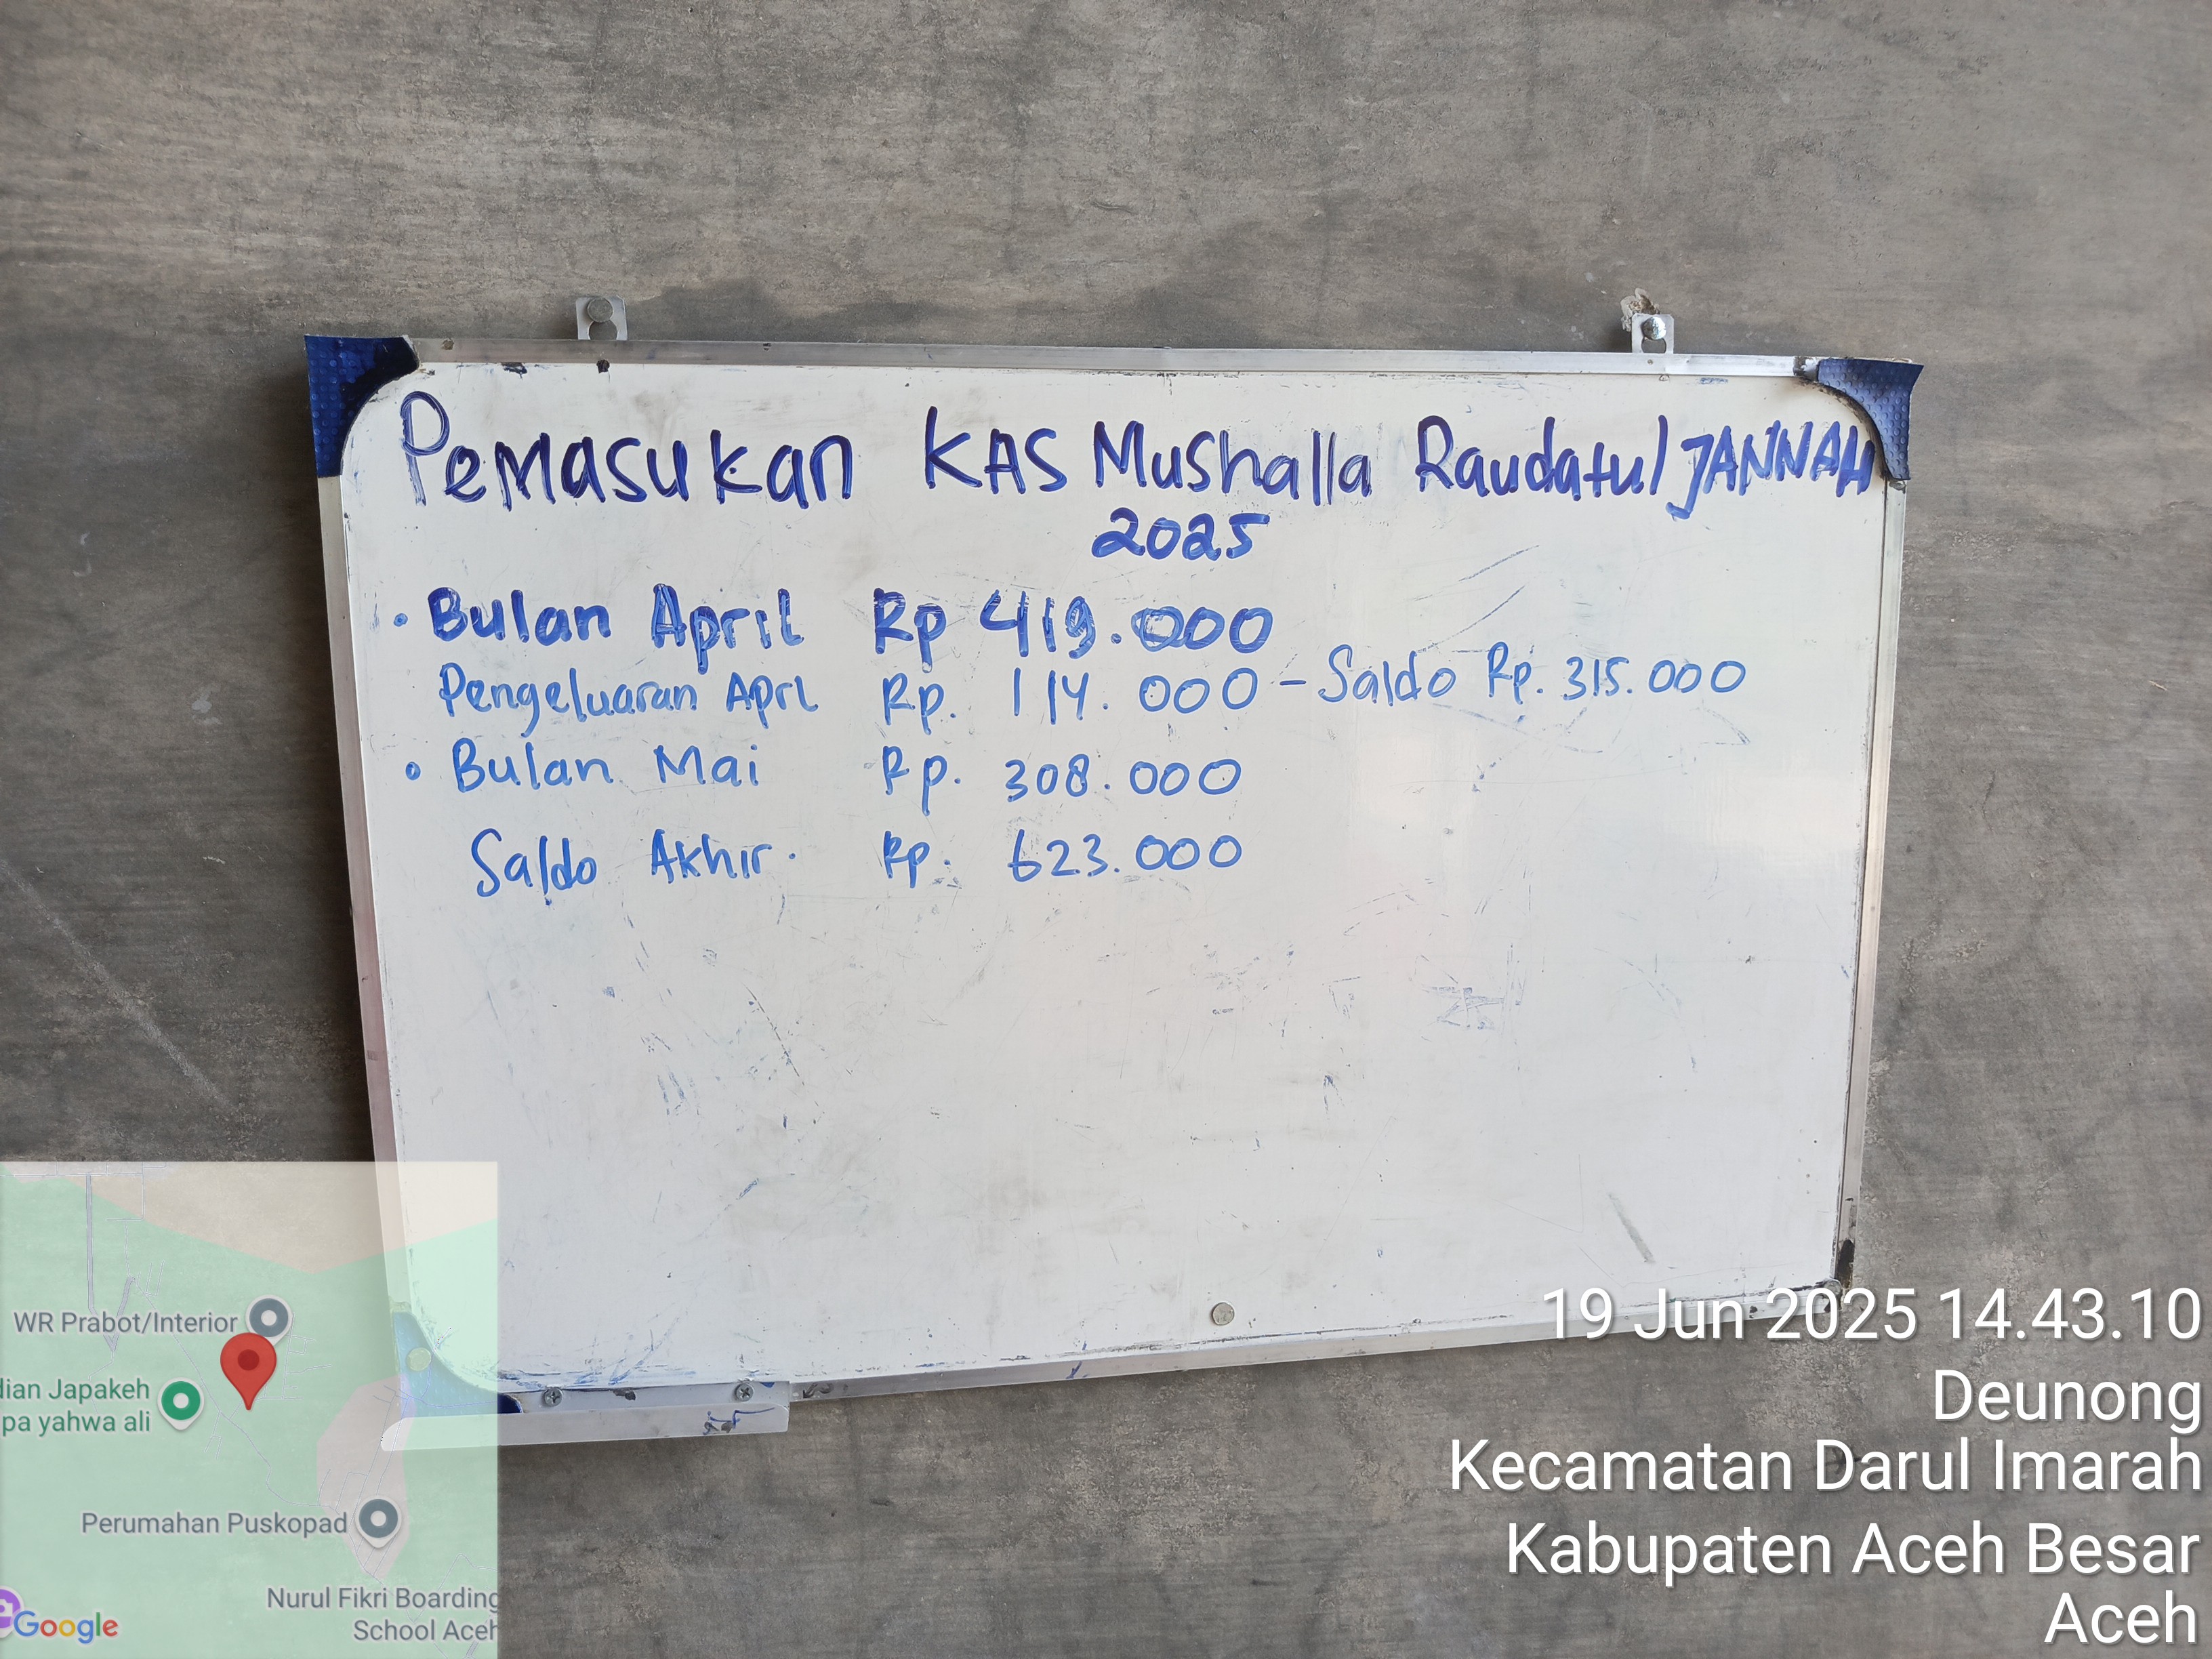 Pemasukan KAS Mushalla Raudatul JANNAH
2025
• Bulan April Rp 419.000
Pengeluaran Aprl Rp. 114.000 – Saldo Rp. 315.000
• Bulan Mai Rp. 308.000
Saldo Akhir. Rp. 623.000
WR Prabot/Interior
dian Japakeh
pa yahwa ali
Perumahan Puskopad
Nurul Fikri Boarding
School Aceh
Google
19 Jun 2025 14.43.10
Deunong
Kecamatan Darul Imarah
Kabupaten Aceh Besar
Aceh